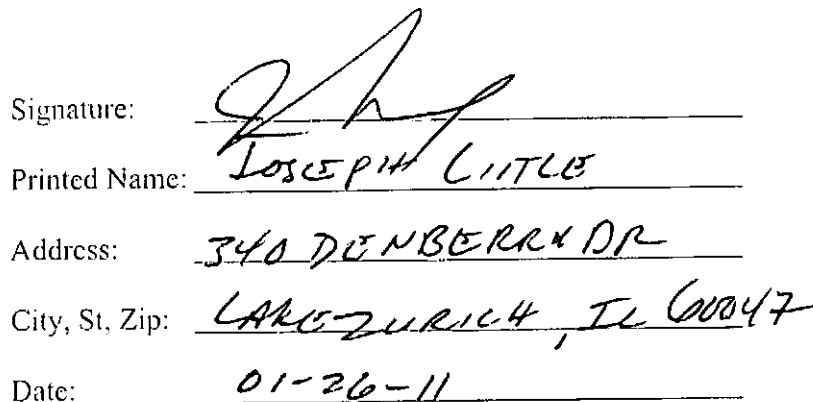 Signature:
Printed Name: JOSEPH LITTLE
Address: 340 DENBERRY DR
City, St, Zip: LAKE ZURICH, IL 60047
Date: 01-26-11